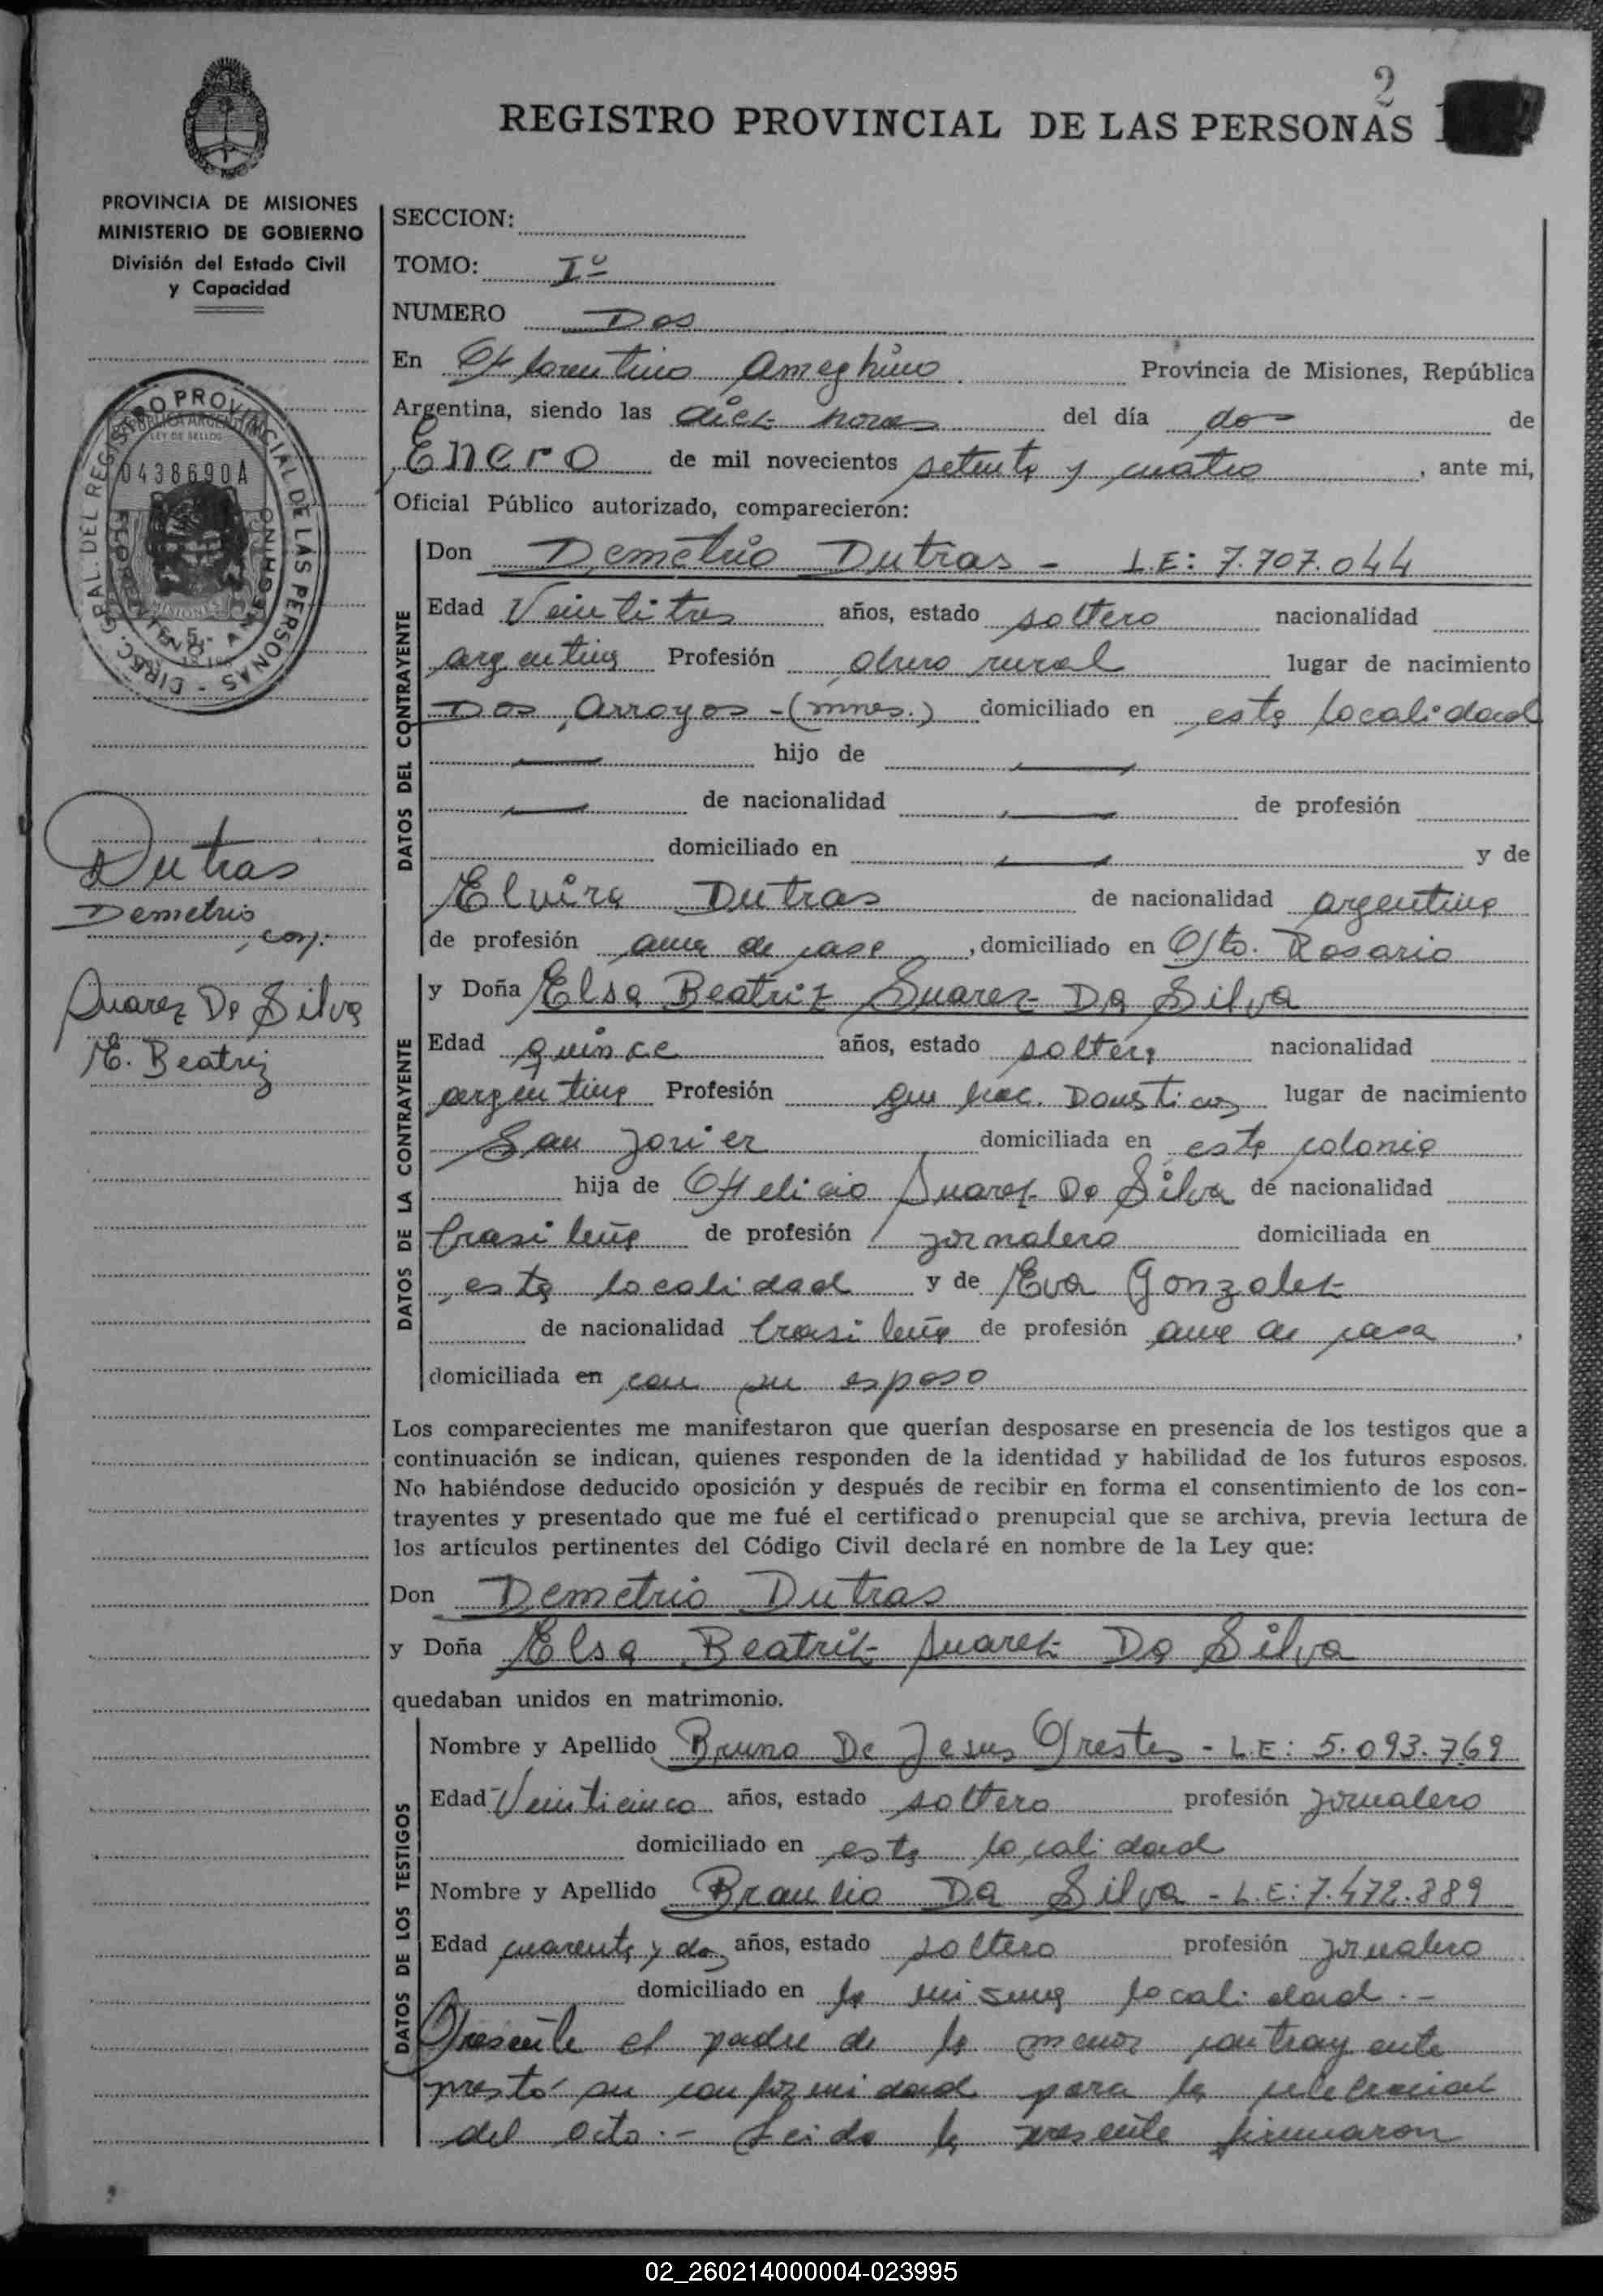 2
REGISTRO PROVINCIAL DE LAS PERSONAS
PROVINCIA DE MISIONES
MINISTERIO DE GOBIERNO
División del Estado Civil
y Capacidad
REPUBLICA ARGENTINA
LEY DE SELLOS
0438690A
MISIONES
DIREC. GRAL. DEL REGISTRO PROVINCIAL DE LAS PERSONAS
FLORENTINO AMEGHINO
Dutras
Demetrio
con:
Suarez Da Silva
E. Beatriz
SECCION:
TOMO: Iº
NUMERO Dos
En Florentino Ameghino Provincia de Misiones, República
Argentina, siendo las diez horas del día dos de
Enero de mil novecientos setenta y cuatro, ante mi,
Oficial Público autorizado, comparecierón:
DATOS DEL CONTRAYENTE
Don Demetrio Dutras - L.E: 7.707.044
Edad Veintitres años, estado soltero nacionalidad
argentina Profesión obrero rural lugar de nacimiento
Dos Arroyos - (mnes.) domiciliado en esta localidad
hijo de
de nacionalidad de profesión
domiciliado en y de
Elvira Dutras de nacionalidad argentina
de profesión ama de casa, domiciliado en Pto. Rosario
DATOS DE LA CONTRAYENTE
y Doña Elsa Beatriz Suarez Da Silva
Edad quince años, estado soltera nacionalidad
argentina Profesión que hac. Domesticos lugar de nacimiento
San Javier domiciliada en esta colonia
hija de Felicio Suarez Da Silva de nacionalidad
brasileña de profesión jornalero domiciliada en
esta localidad y de Eva Gonzalez
de nacionalidad brasileña de profesión ama de casa,
domiciliada en con su esposo
Los comparecientes me manifestaron que querían desposarse en presencia de los testigos que a
continuación se indican, quienes responden de la identidad y habilidad de los futuros esposos.
No habiéndose deducido oposición y después de recibir en forma el consentimiento de los con-
trayentes y presentado que me fué el certificado prenupcial que se archiva, previa lectura de
los artículos pertinentes del Código Civil declaré en nombre de la Ley que:
Don Demetrio Dutras
y Doña Elsa Beatriz Suarez Da Silva
quedaban unidos en matrimonio.
DATOS DE LOS TESTIGOS
Nombre y Apellido Bruno De Jesus Prestes - L.E: 5.093.769
Edad Veinticinco años, estado soltero profesión jornalero
domiciliado en esta localidad
Nombre y Apellido Braulio Da Silva - L.E: 7.472.389
Edad cuarenta y dos años, estado soltero profesión jornalero
domiciliado en la misma localidad.-
Presente el padre de la menor contrayente
prestó su conformidad para la celebración
del acto.- Leida la presente firmaron
02_260214000004-023995